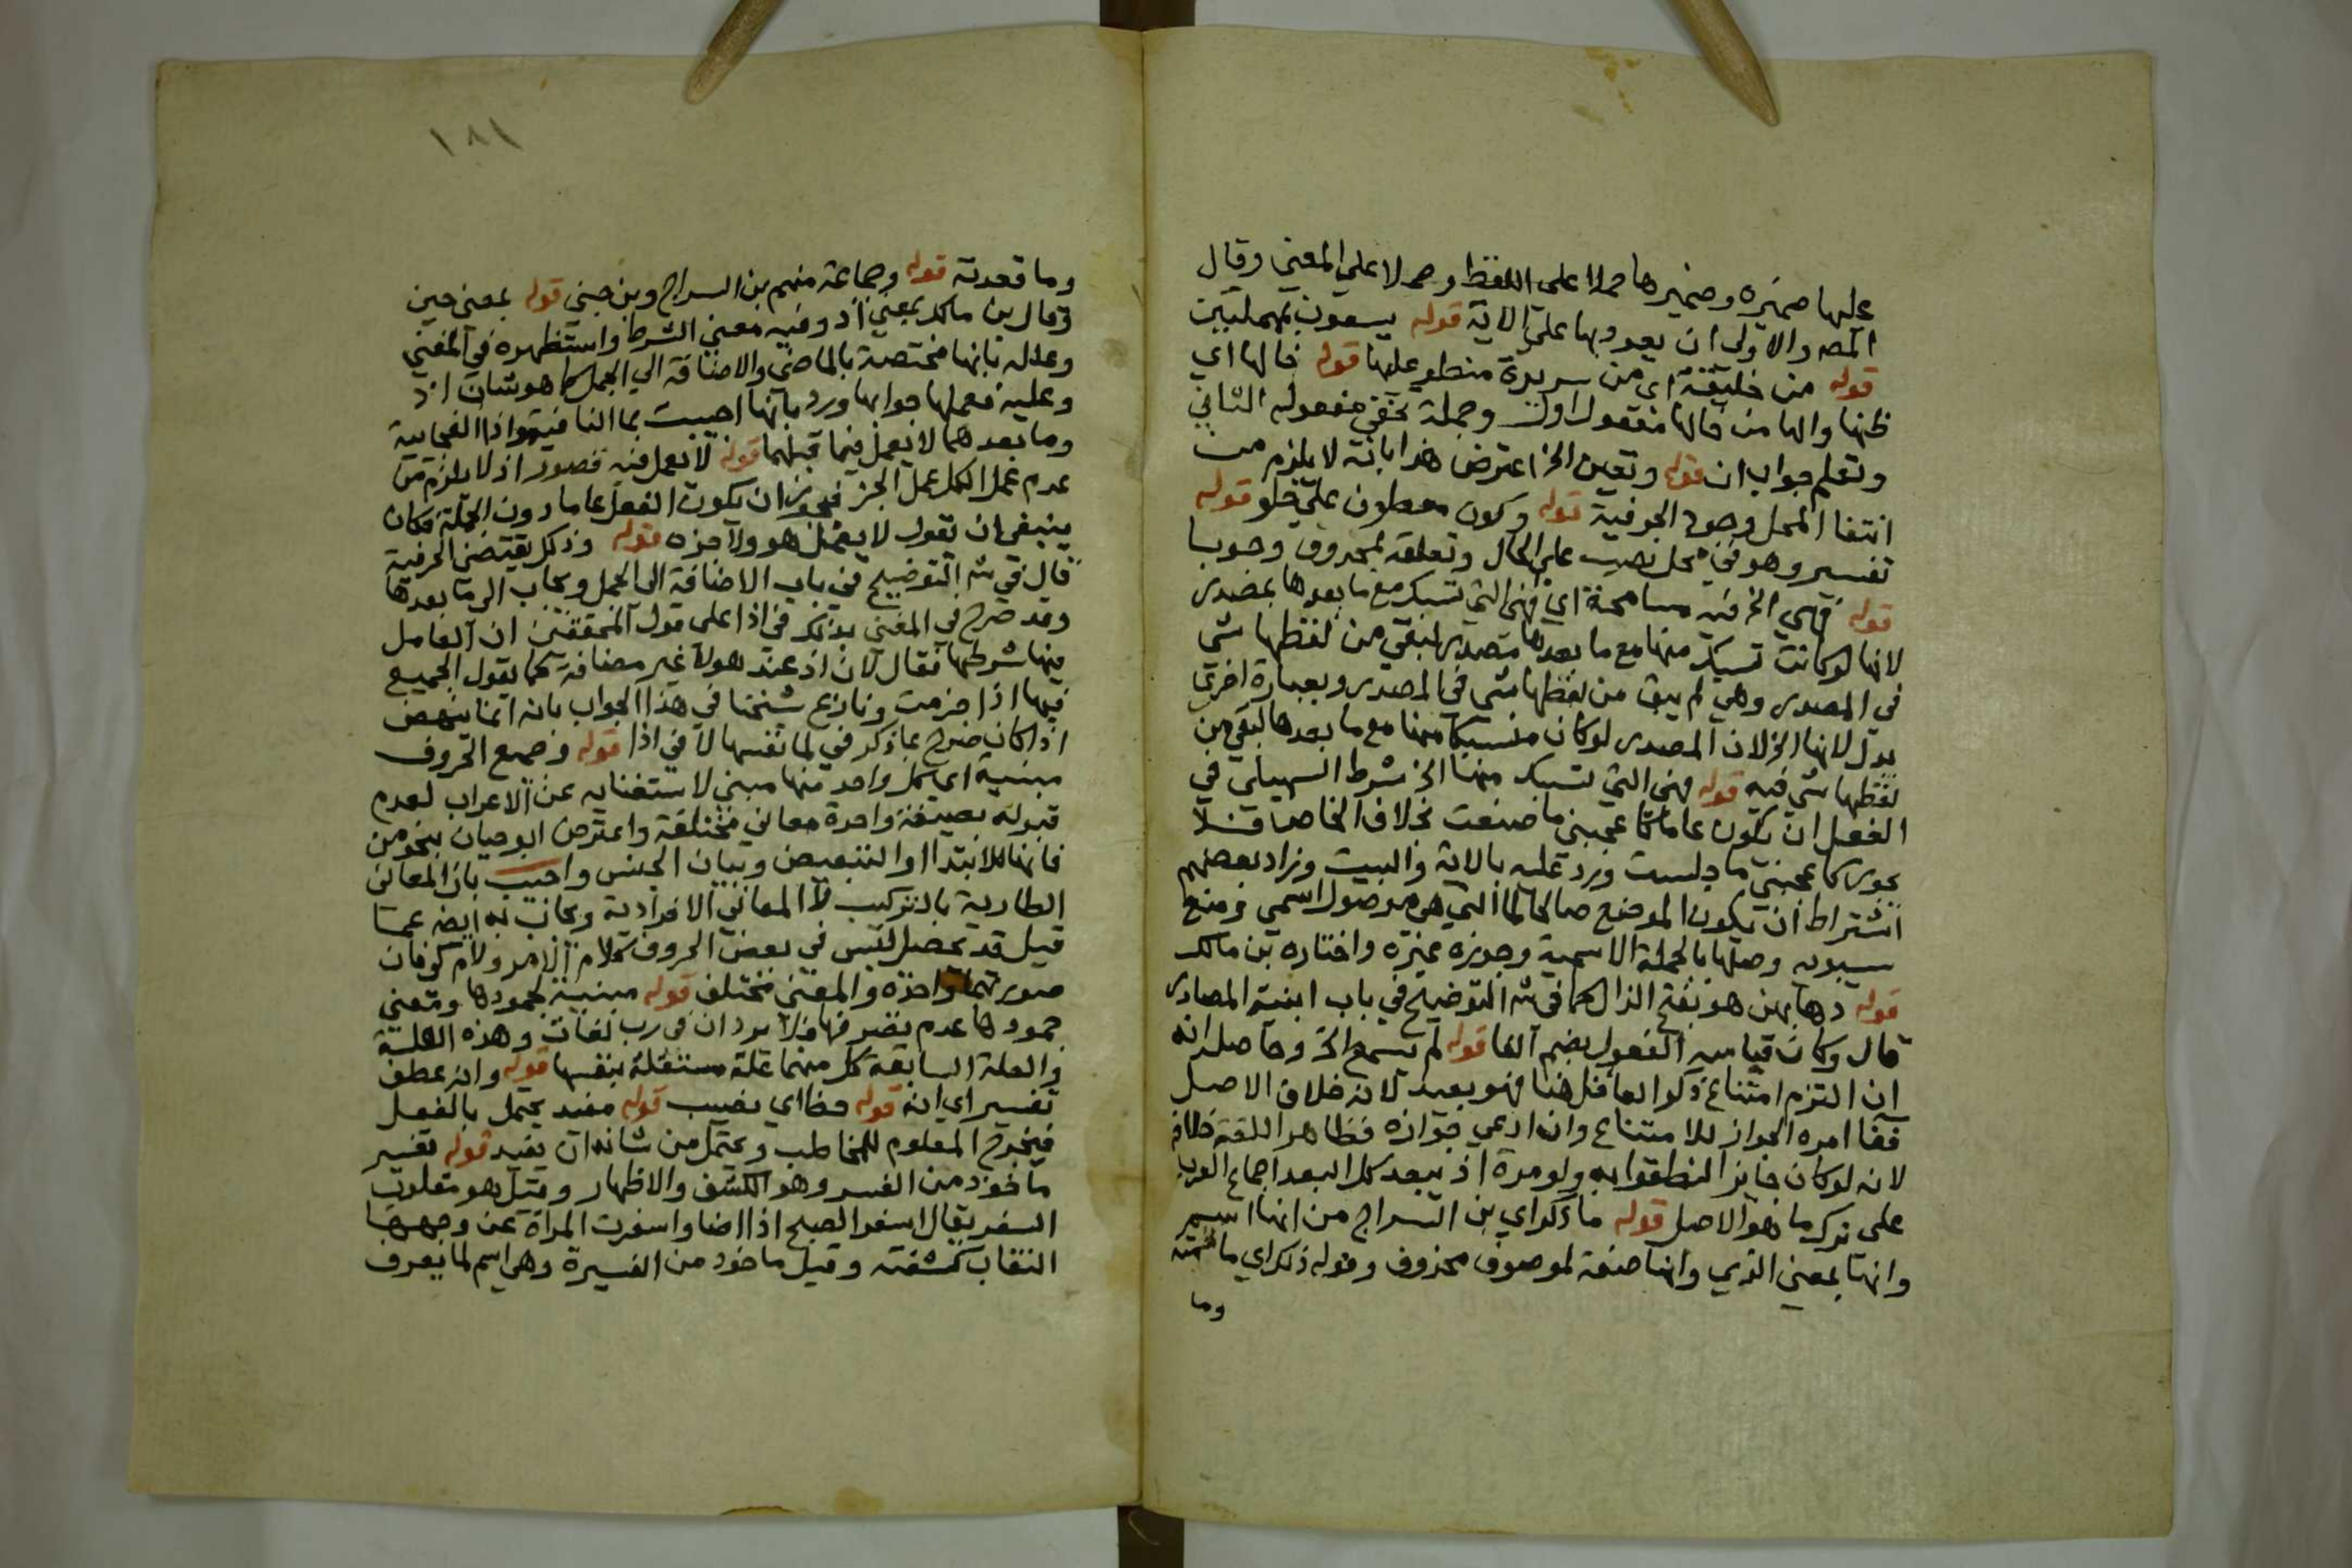 عليها ضميره وضميرها حملا على اللفظ وحملا على المعنى وقال
المص والاولى ان يعود بها على الاية قوله يسعون بمهملتين
قوله من خليقة اى من سريرة منطو عليها قوله خالها اي
ظنها والها من خالها مفعول اول وجملة تخفى مفعوله الثاني
وتعلم جواب ان قوله وتعين الخ اعترض هذا بانه لا يلزم من
انتفا المحل وجود الحرفية قوله وكون معطوف على خلو قوله
تفسير وهو في محل نصب على الحال وتعلقه بمحذوف وجوبا
قوله فهي الخ فيه مسامحة اي فهى التي تسبك مع ما بعدها بمصدر
لانها لو كانت تسبك منها مع ما بعدها بمصدر لبقي من لفظها شى
في المصدر وهي لم يبق من لفظها شى في المصدر وبعبارة اخرى
بدل لانها الخ لان المصدر لو كان منسبكا منها مع ما بعدها لبقي من
لفظها شي فيه قوله فهى التي تسبك منها الخ شرط السهيلي في
الفعل ان يكون عاما كاعجبني ما صنعت بخلاف الخاص فلا
يجوز كاعجبني ما جلست ورد عليه بالاية والبيت وزاد بعضهم
اشتراط ان يكون الموضع صالحا لما التي هي موصول اسمي ومنع
سيبويه وصلها بالجملة الاسمية وجوزه غيره واختاره بن مالك
قوله دهابهن هو بفتح الذال كما في شه التوضيح في باب ابنية المصادر
قال وكان قياسه الفعول بضم الفا قوله لم يسمع الخ وحاصله انه
ان التزم امتناع ذكر العافل هنا فهو بعيد لانه خلاف الاصل
فقا امره الجواز للامتناع وان ادعي جوازه فظاهر اللغة خلافه
لانه لو كان جايز النطقوا به ولو مرة اذ يبعد كل البعد اجماع العرب
على ترك ما هو الاصل قوله ما ذكر اي بن السراج من انها اسم
وانها بمعنى الذي وانها صفة لموصوف محذوف وقوله ذكر اي ما
وما
١٨١
وما قعدته قوله وجماعة منهم بن السراج وبن جني قوله بمعنى حين
وقال بن مالك بمعنى اذ وفيه معنى الشرط واستظهره في المغني
وعلله بانها مختصة بالماضى والاضافة الي الجمل كما هو شان اذ
وعليه فعملها جوابها ورد بانها اجيبت بما النافية واذا الفجايية
وما بعدهما لا يعمل فيما قبلهما قوله لا يعمل فيه قصور اذ لا يلزم من
عدم عمل الكل عمل الجز فيجوز ان يكون الفعل عاما دون الجملة فكان
ينبغي ان تقول لا يعمل هو ولا جزه قوله وذلك يقتضى الحرفية
قال في شه التوضيح في باب الاضافة الى الجمل ويجاب الى ما بعدها
وقد صرح في المغني بذلك في اذا على قول المحققين ان العامل
فيها شرطها فقال لان اذ عند هولا غير مضافة كما يقول الجميع
فيها اذا جزمت ونازع شيخنا في هذا الجواب بانه انما ينهض
اذا كان صرح بما ذكر في لما نفسها لا في اذا قوله وجميع الحروف
مبنية اي كل واحد منها مبني لاستغنايه عن الاعراب لعدم
قبوله بصيغة واحدة معاني مختلفة واعترض ابو حيان بنحو من
فانها للابتدا او التبعيض وبيان الجنس واجيب بان المعاني
الطارية بالتركيب لا المعاني الافرادية ويجاب به ايضه عما
قيل قد يحصل لبس في بعض الحروف كلام الامر ولام كي فان
صورتهما واحدة والمعنى مختلف قوله مبنية لجمودها ومعنى
جمودها عدم تصرفها فلا يرد ان في رب لغات وهذه العلة
والعلة السابقة كل منهما علة مستقلة بنفسها قوله وانه عطف
تفسير اي انه قوله حظا اي نصيب قوله مفيد يحتمل بالفعل
فيخرج المعلوم للمخاطب ويحتمل من شانه ان يفيد قوله تفسير
ماخوذ من الفسر وهو الكشف والاظهار وقيل هو مقلوب
السفر يقال اسفر الصبح اذا اضا واسفرت المراة عن وجهها
النقاب كشفته وقيل ماخوذ من الفسيرة وهي اسم لما يعرف